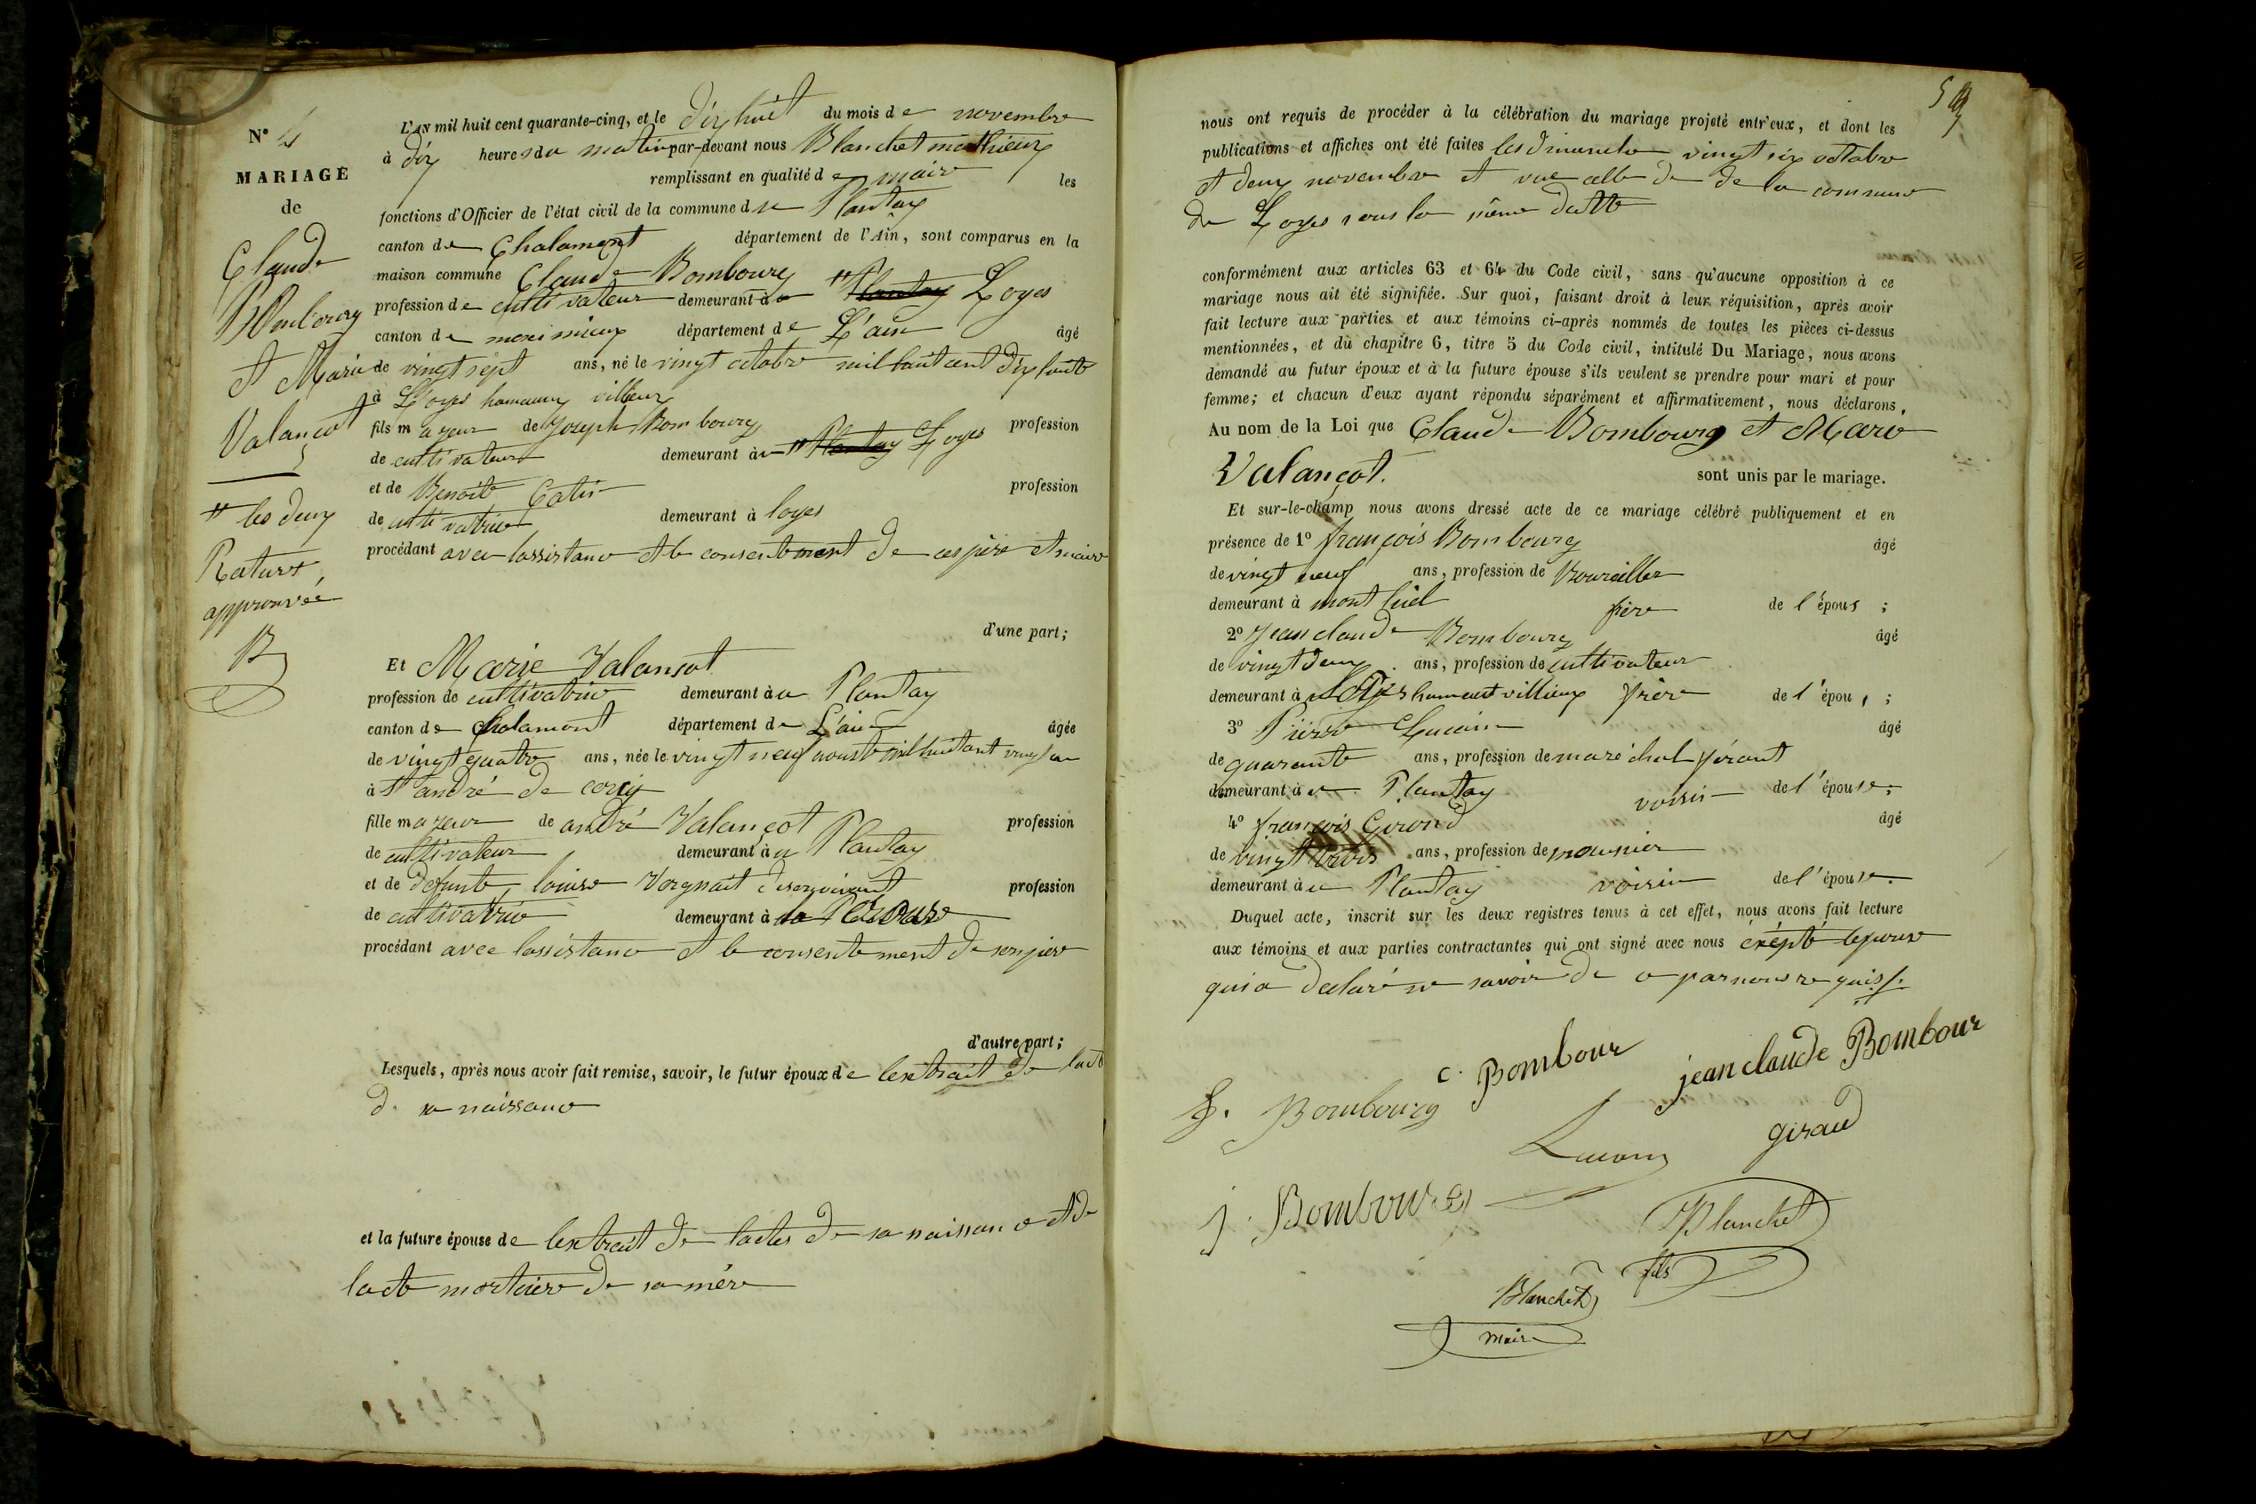 N° 4
MARIAGE
de
Claude
Bombourg
et Marie
Valançot
" les deux
Rature
approuvée
B
L'AN mil huit cent quarante-cinq, et le dix huit du mois de novembre
à dix heures du matin par-devant nous Blanchet mathieux
remplissant en qualité de maire les
fonctions d'Officier de l'état civil de la commune du Plantay
canton de Chalamont département de l'Ain, sont comparus en la
maison commune Claude Bombourg
profession de cultivateur demeurant à " Plantay Loyes
canton de meximieux département de L'ain âgé
de vingt sept ans, né le vingt octobre mil huit cent dix huit
à Loyes hameaux villieux
fils mageur de Joseph Bombourg profession
de cultivateur demeurant à " Plantay Loyes
et de Benoite Catin profession
de cultivatrice demeurant à loyes
procédant avec lassistance et le consentement de ces père et mère
d'une part;
Et Marie Valansot
profession de cultivatrice demeurant au Plantay
canton de Chalamont département de L'ain âgée
de vingt quatre ans, née le vingt neuf aoust mil huit cent vingt un
à St andré de corcy
fille mageur de andré Valançot profession
de cultivateur demeurant au Plantay
et de defunte louise Vorgnait de son vivant profession
de cultivatrice demeurant à la Pérouse
procédant avec lassistance et le consentement de son père
d'autre part;
Lesquels, après nous avoir fait remise, savoir, le futur époux de lextrait de lacte
de sa naissance
et la future épouse de lextrait de lactes de sa naissance et de
lacte mortuère de sa mére
nous ont requis de procéder à la célébration du mariage projeté entr'eux, et dont les
publications et affiches ont été faites les dimanche vingt six octobre
et deux novembre et vue celle de de la commune
de Loyes sous la même datte
conformément aux articles 63 et 64 du Code civil, sans qu'aucune opposition à ce
mariage nous ait été signifiée. Sur quoi, faisant droit à leur réquisition, après avoir
fait lecture aux parties et aux témoins ci-après nommés de toutes les pièces ci-dessus
mentionnées, et du chapitre 6, titre 5 du Code civil, intitulé Du Mariage, nous avons
demandé au futur époux et à la future épouse s'ils veulent se prendre pour mari et pour
femme; et chacun d'eux ayant répondu séparément et affirmativement, nous déclarons,
Au nom de la Loi que Claude Bombourg et Marie
Valançot. sont unis par le mariage.
Et sur-le-champ nous avons dressé acte de ce mariage célébré publiquement et en
présence de 1° françois Bombourg âgé
de vingt neuf ans, profession de
demeurant à mont luel frère de l'épous ;
2° jean claude Bombourg âgé
de vingt deux ans, profession de cultivateur
demeurant à Loyes hameaut villieux frère de l'épou, ;
3° Pierre Lucain âgé
de quarante ans, profession de maréchal férant
demeurant au Plantay voisin de l'épouse;
4° françois Girond âgé
de vingt trois ans, profession de meunier
demeurant au Plantay voisin de l'épouse.
Duquel acte, inscrit sur les deux registres tenus à cet effet, nous avons fait lecture
aux témoins et aux parties contractantes qui ont signé avec nous éxépté lepouse
qui a declaré ne savoir de ce par nous re quis/.
c. Bombour
jean claude Bombour
f. Bombourg
giraud
j. Bombourg
Blanchet
fils
Blanchet
maire